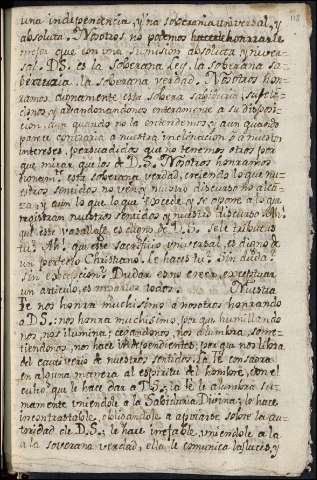 118
una independencia, y una soberania universal, y
absoluta. Nosotros no podemos hacerle honrrarle
mejor que con una sumision absoluta, y univer=
sal. D.S. es la soberana Ley, la soberana Sa=
biduria, la soberana verdad. Nosotros hon=
ramos dignamente esta sobera sabiduria sujetan=
donos, y abandonandonos enteramente a su disposi=
cion, aun quando no la entendemos, y aun quando
parece contraria a nuestra inclinacion, o a nuestro
interes, persuadidos que no tenemos otros por
que mirar que los de D.S. Nosotros honramos
esta soberana verdad, creiendo lo que nu=
estros sentidos no ven, y nuestro discurso no alcan=
za, y aun lo que lo que excede, y se opone a lo que
registran nuestros sentidos, y nuestro discurso. Ah!
que este vasallaje es digno de D.S. se le tributas
tu? Ah! que este sacrificio universal, es digno de
un perfecto Christiano! Le haces tu? Sin duda?
Sin excepcion? Dudar es no creer, exceptuar
un articulo, es negarlos todos. Nuestra
Fe nos honra muchissimo a nosotros honrando
a D.S.: nos honra muchissimo, por que humillando
nos, nos ilumina; cegandonos, nos alumbra, some=
tiendonos, no hace independientes, por que nos libra
del cautiverio de nuestros sentidos. La Fe consagra
en alguna manera al espiritu del hombre, con el
culto que le hace dar a D.S.; la Fe le alumbra su=
mamente uniendole a la Sabiduria Divina; lo hace
incontrastable, obligandole a apoiarse sobre la au=
toridad de D.S.; le hace inefable, uniendole a la
a la soverana verdad, ella le comunica las luces, y